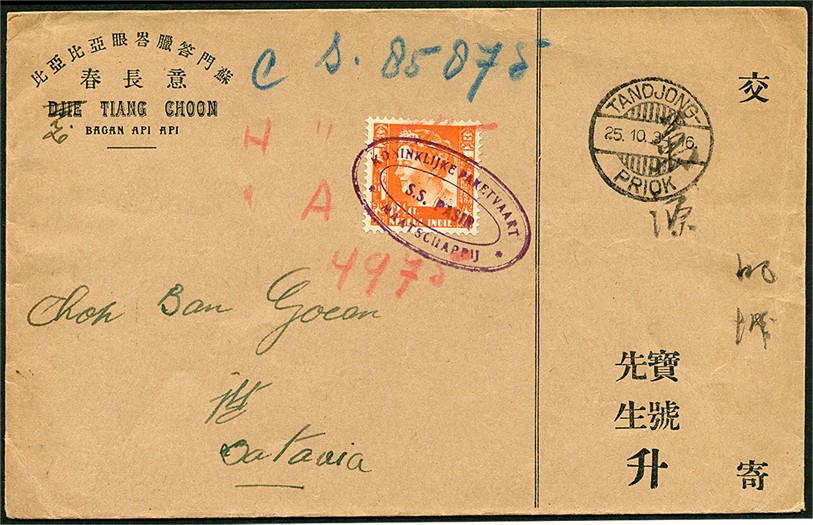 蘇門答臘峇眼亞比亞比
意長春
DJIE TIANG CHOON
BAGAN API API
C S. 85875
H "
A
4975
KONINKLIJKE PAKETVAART
S.S. PASIR
MAATSCHAPPIJ
Chop Ban Goean
Batavia
TANDJONG-
25.10.3
6.
PRIOK
交
萬源
寄
寶號
先生
升